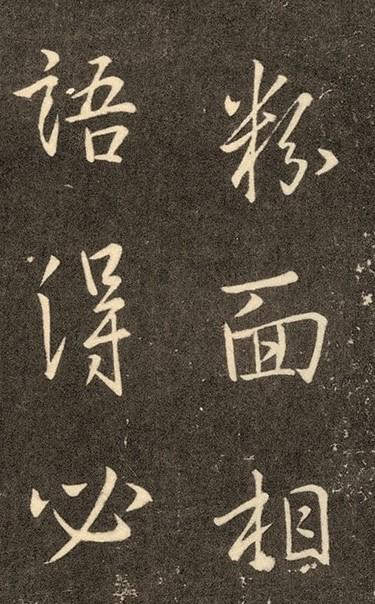 粉面相
語得必